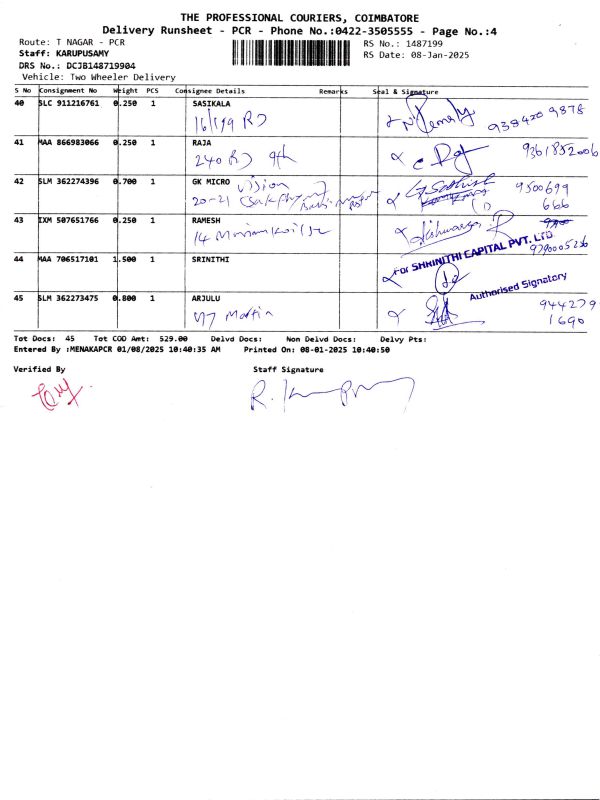 THE PROFESSIONAL COURIERS, COIMBATORE
Delivery Runsheet - PCR - Phone No.:0422-3505555 - Page No.:4
Route: T NAGAR - PCR
RS No.: 1487199
Staff: KARUPUSAMY
RS Date: 08-Jan-2025
DRS No.: DCJB148719904
Vehicle: Two Wheeler Delivery
S No Consignment No Weight PCS Consignee Details Remarks Seal & Signature
40 SLC 911216761 0.250 1 SASIKALA
16/199 RD
41 MAA 866983066 0.250 1 RAJA
240 RD 9th
9361852006
42 SLM 362274396 0.700 1 GK MICRO vision
20-21
G Sathish
9500699
666
43 IXM 507651766 0.250 1 RAMESH
14
44 MAA 706517101 1.500 1 SRINITHI
For SHRINITHI CAPITAL PVT. LTD.
Authorised Signatory
45 SLM 362273475 0.800 1 ARJULU
Martin
944279
1690
Tot Docs: 45 Tot COD Amt: 529.00 Delvd Docs: Non Delvd Docs: Delvy Pts:
Entered By :MENAKAPCR 01/08/2025 10:40:35 AM Printed On: 08-01-2025 10:40:50
Verified By Staff Signature